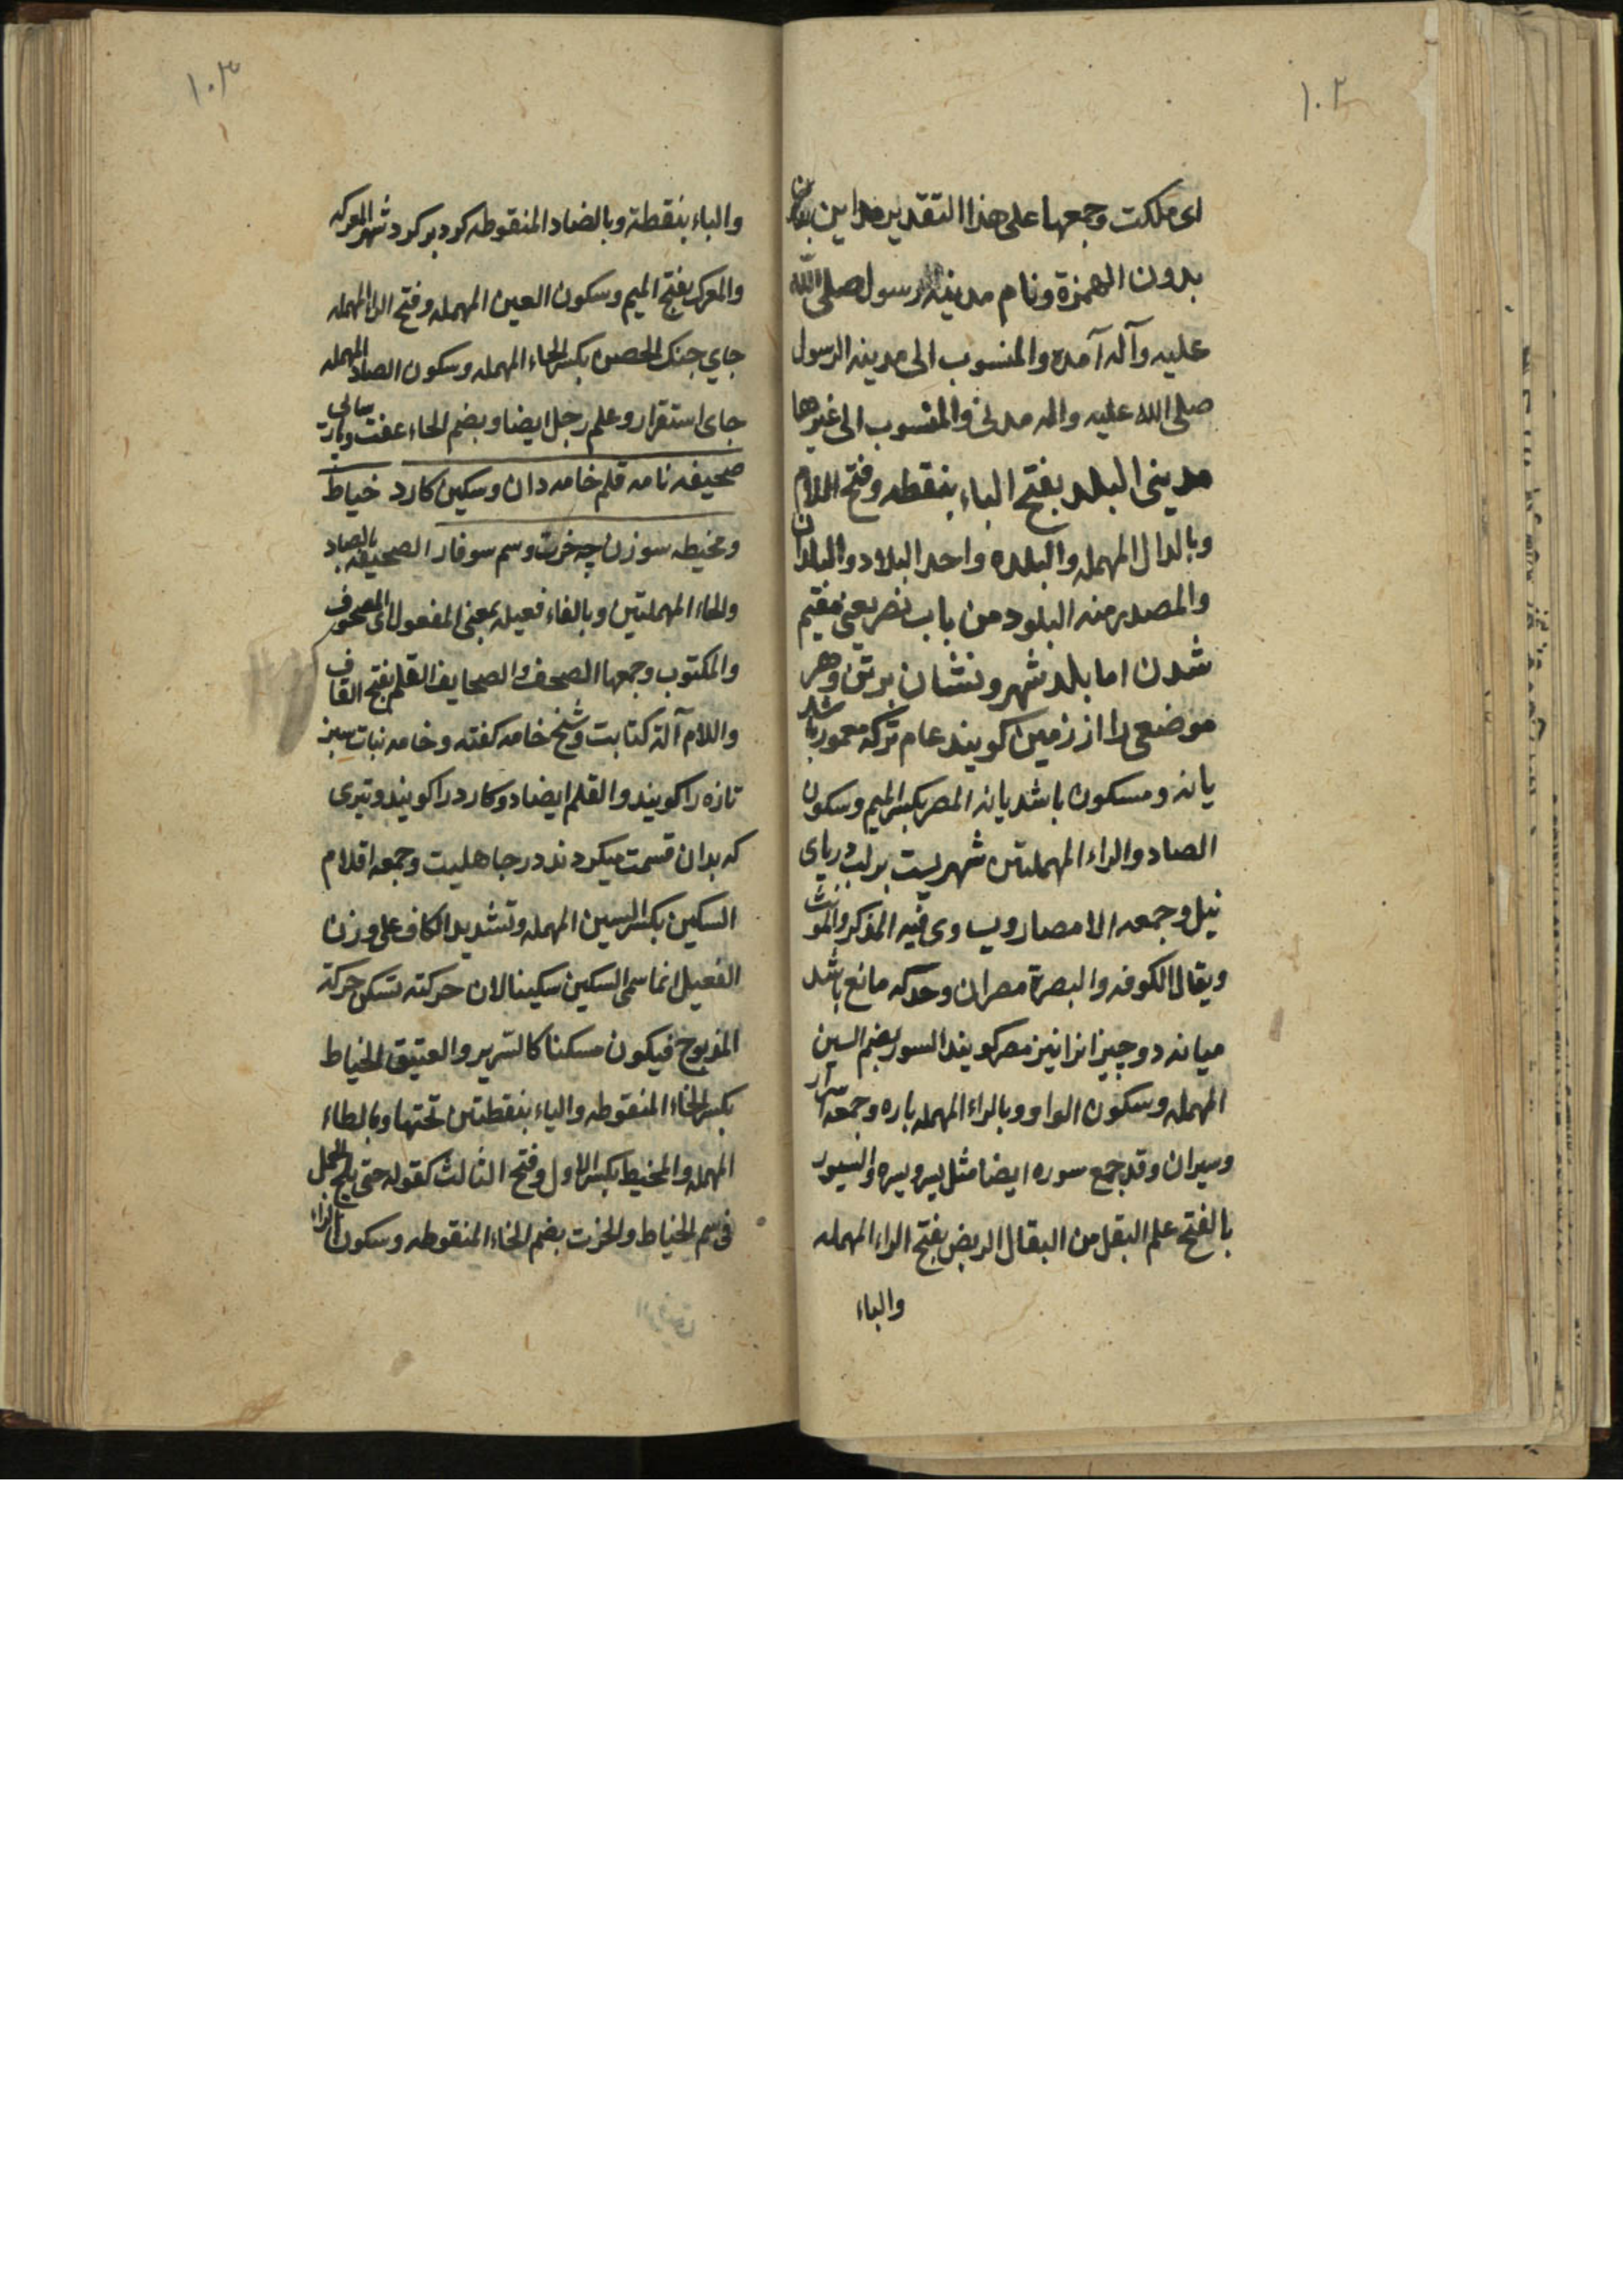 ١٠٢
ای ملکت وجمعها علی هذا التقدیر مداین
بدون الهمزة ونام مدینه الرسول صلی الله
علیه وآله آمده والمنسوب الی مدینه الرسول
صلی الله علیه واله مدنی والمنسوب الی غیرها
مدینی البلد بفتح الباء بنقطه وفتح اللام
وبالدال المهمله والبلده واحد البلاد والبلدان
والمصدر منه البلود من باب نصر یعنی مقیم
شدن اما بلد شهر ونشان برتن وهر
موضعی را از زمین کویند عام ترکه معمور باشد
یا نه ومسکون باشد یا نه المصر بکسر المیم وسکون
الصاد والراء المهملتین شهریست بر لب دریای
نیل وجمعه الامصار ویساوی فیه المذکر والمونث
ویقال الکوفه والبصرة مصران وحد که مانع باشد
میانه دو چیز انرا نیز مصر کویند السور بضم السین
المهمله وسکون الواو وبالراء المهمله باره وجمعه اسوار
وسیران وقد جمع سوره ایضا مثل یسر ویسره والسیور
بالفتح علم البقل من البقال الربض بفتح الراء المهمله
والباء
١٠٣
والباء بنقطة وبالضاد المنقوطه کرد بر کرد شهر المعرکه
والمعرک بفتح المیم وسکون العین المهمله وفتح الراء المهمله
جای جنک الحصن بکسر الحاء المهمله وسکون الصاد المهمله
جای استقرار وعلم رجل ایضا وبضم الحاء عفت وپارسائی
صحیفه نامه قلم خامه دان وسکین کارد خیاط
ومخیطه سوزن چه خرت وسم سوفار الصحیفه بالصاد
والحاء المهملتین وبالفاء فعیله بمعنی المفعول ای المصحوف
والمکتوب وجمعها الصحف والصحایف القلم بفتح القاف
واللام آلة کتابت وشخ خامه کفته وخامه نبات سبز
تازه را کویند والقلم ایضا دو کارد را کویند وتیری
که بدان قسمت میکردند در جاهلیت وجمعه اقلام
السکین بکسر السین المهمله وتشدید الکاف علی وزن
الفعیل انما سمی السکین سکینا لان حرکته تسکن حرکة
المذبوح فیکون مسکنا کالشریر والعتیق الخیاط
بکسر الخاء المنقوطه والیاء بنقطتین تحتها وبالطاء
المهمله والمخیط بکسر الاول وفتح الثالث کقوله حتی یلج الجمل
فی سم الخیاط والخرت بضم الخاء المنقوطه وسکون الراء